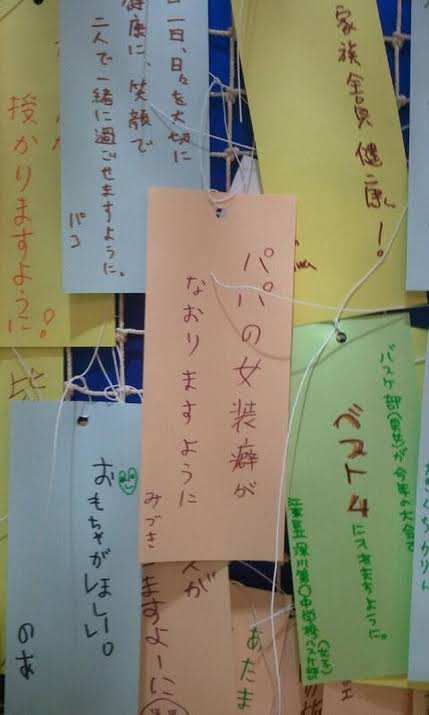 家族全員健康!
一日、日々を大切に
健康に、笑顔で
二人で一緒に過ごせますように。
パコ
授かりますように!
パパの女装癖が
なおりますように
みづき
バスケ部(男子)が今年の大会で
ベスト4
に入れますように。
おもちゃがほしい。
のあ
ますよーに
あたま